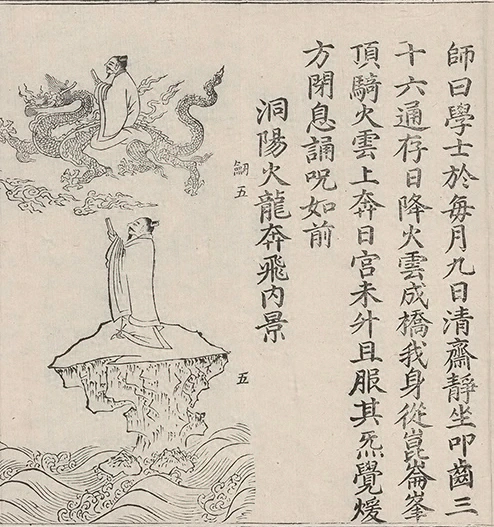 師曰學士於每月九日清齋靜坐叩齒三
十六通存日降火雲成橋我身從崑崙峯
頂騎火雲上奔日宮未升且服其炁覺煖
方閉息誦呪如前
洞陽火龍奔飛內景
五